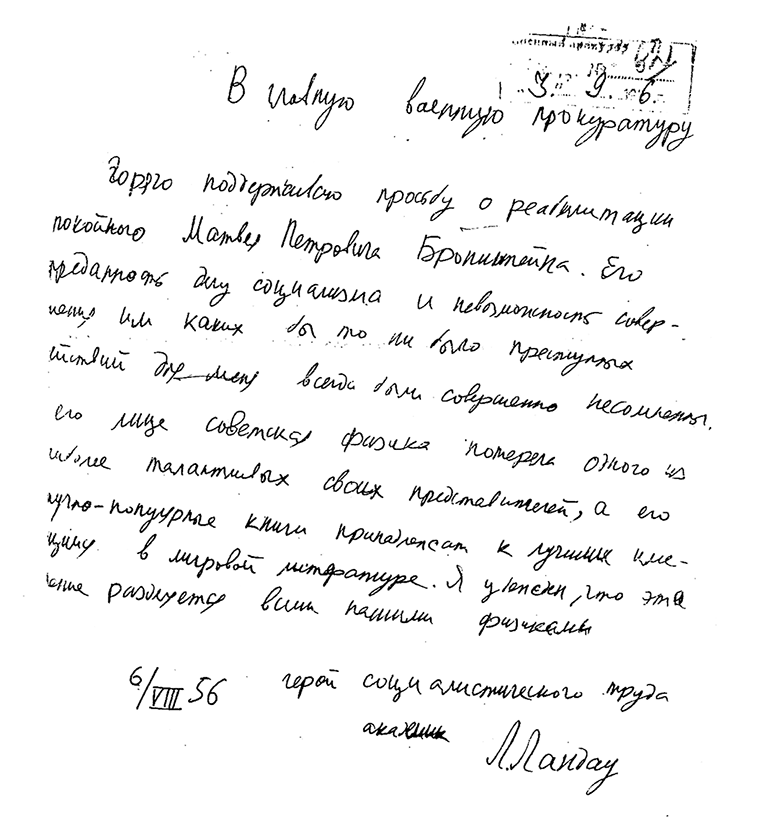 В главную военную прокуратуру
3. 9. 6
Горячо поддерживаю просьбу о реабилитации
покойного Матвея Петровича Бронштейна. Его
преданность делу социализма и невозможность совер-
шения им каких бы то ни было преступных
йствий для меня всегда были совершенно несомненны.
его лице советская физика потеряла одного из
иболее талантливых своих представителей, а его
учно-популярные книги принадлежат к лучшим име-
щимся в мировой литературе. Я убежден, что эта
ение разделяется всеми нашими физиками
6/VIII 56 герой социалистического труда
академик Л.Ландау